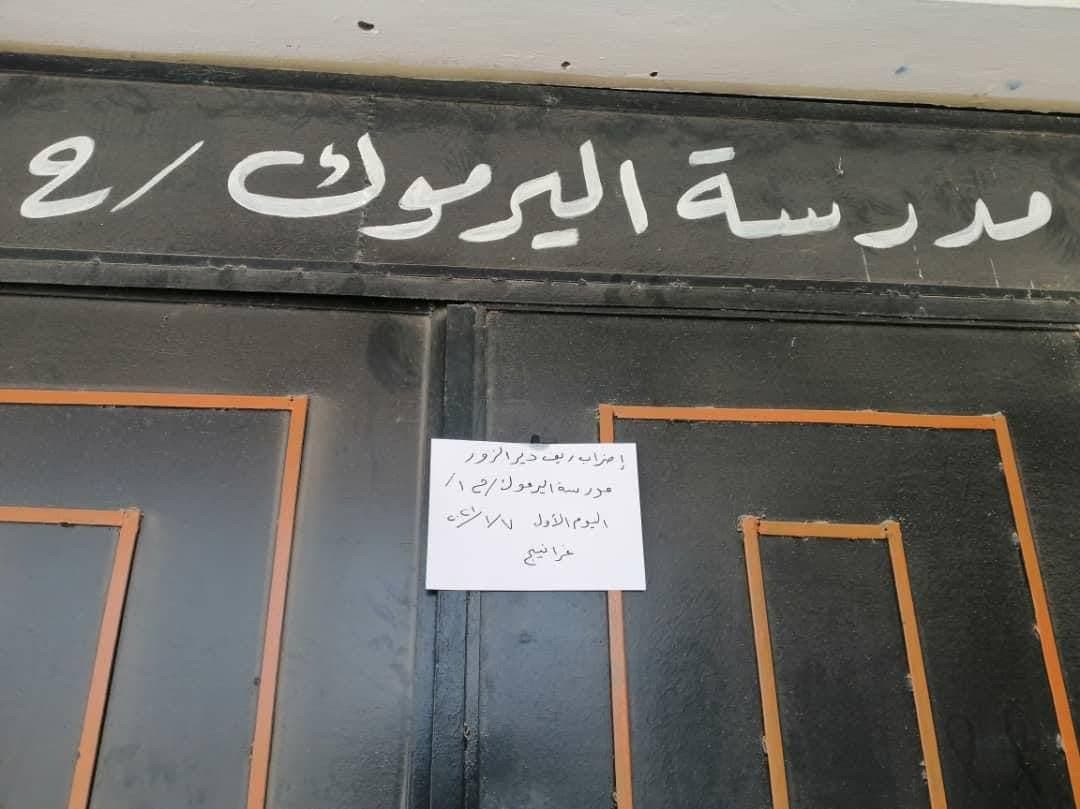 مدرسة اليرموك / ح
إضراب ريف دير الزور
مدرسة اليرموك / ح ١ /
اليوم الأول ٧ / ١ / ٢٠٢١
غرانيج